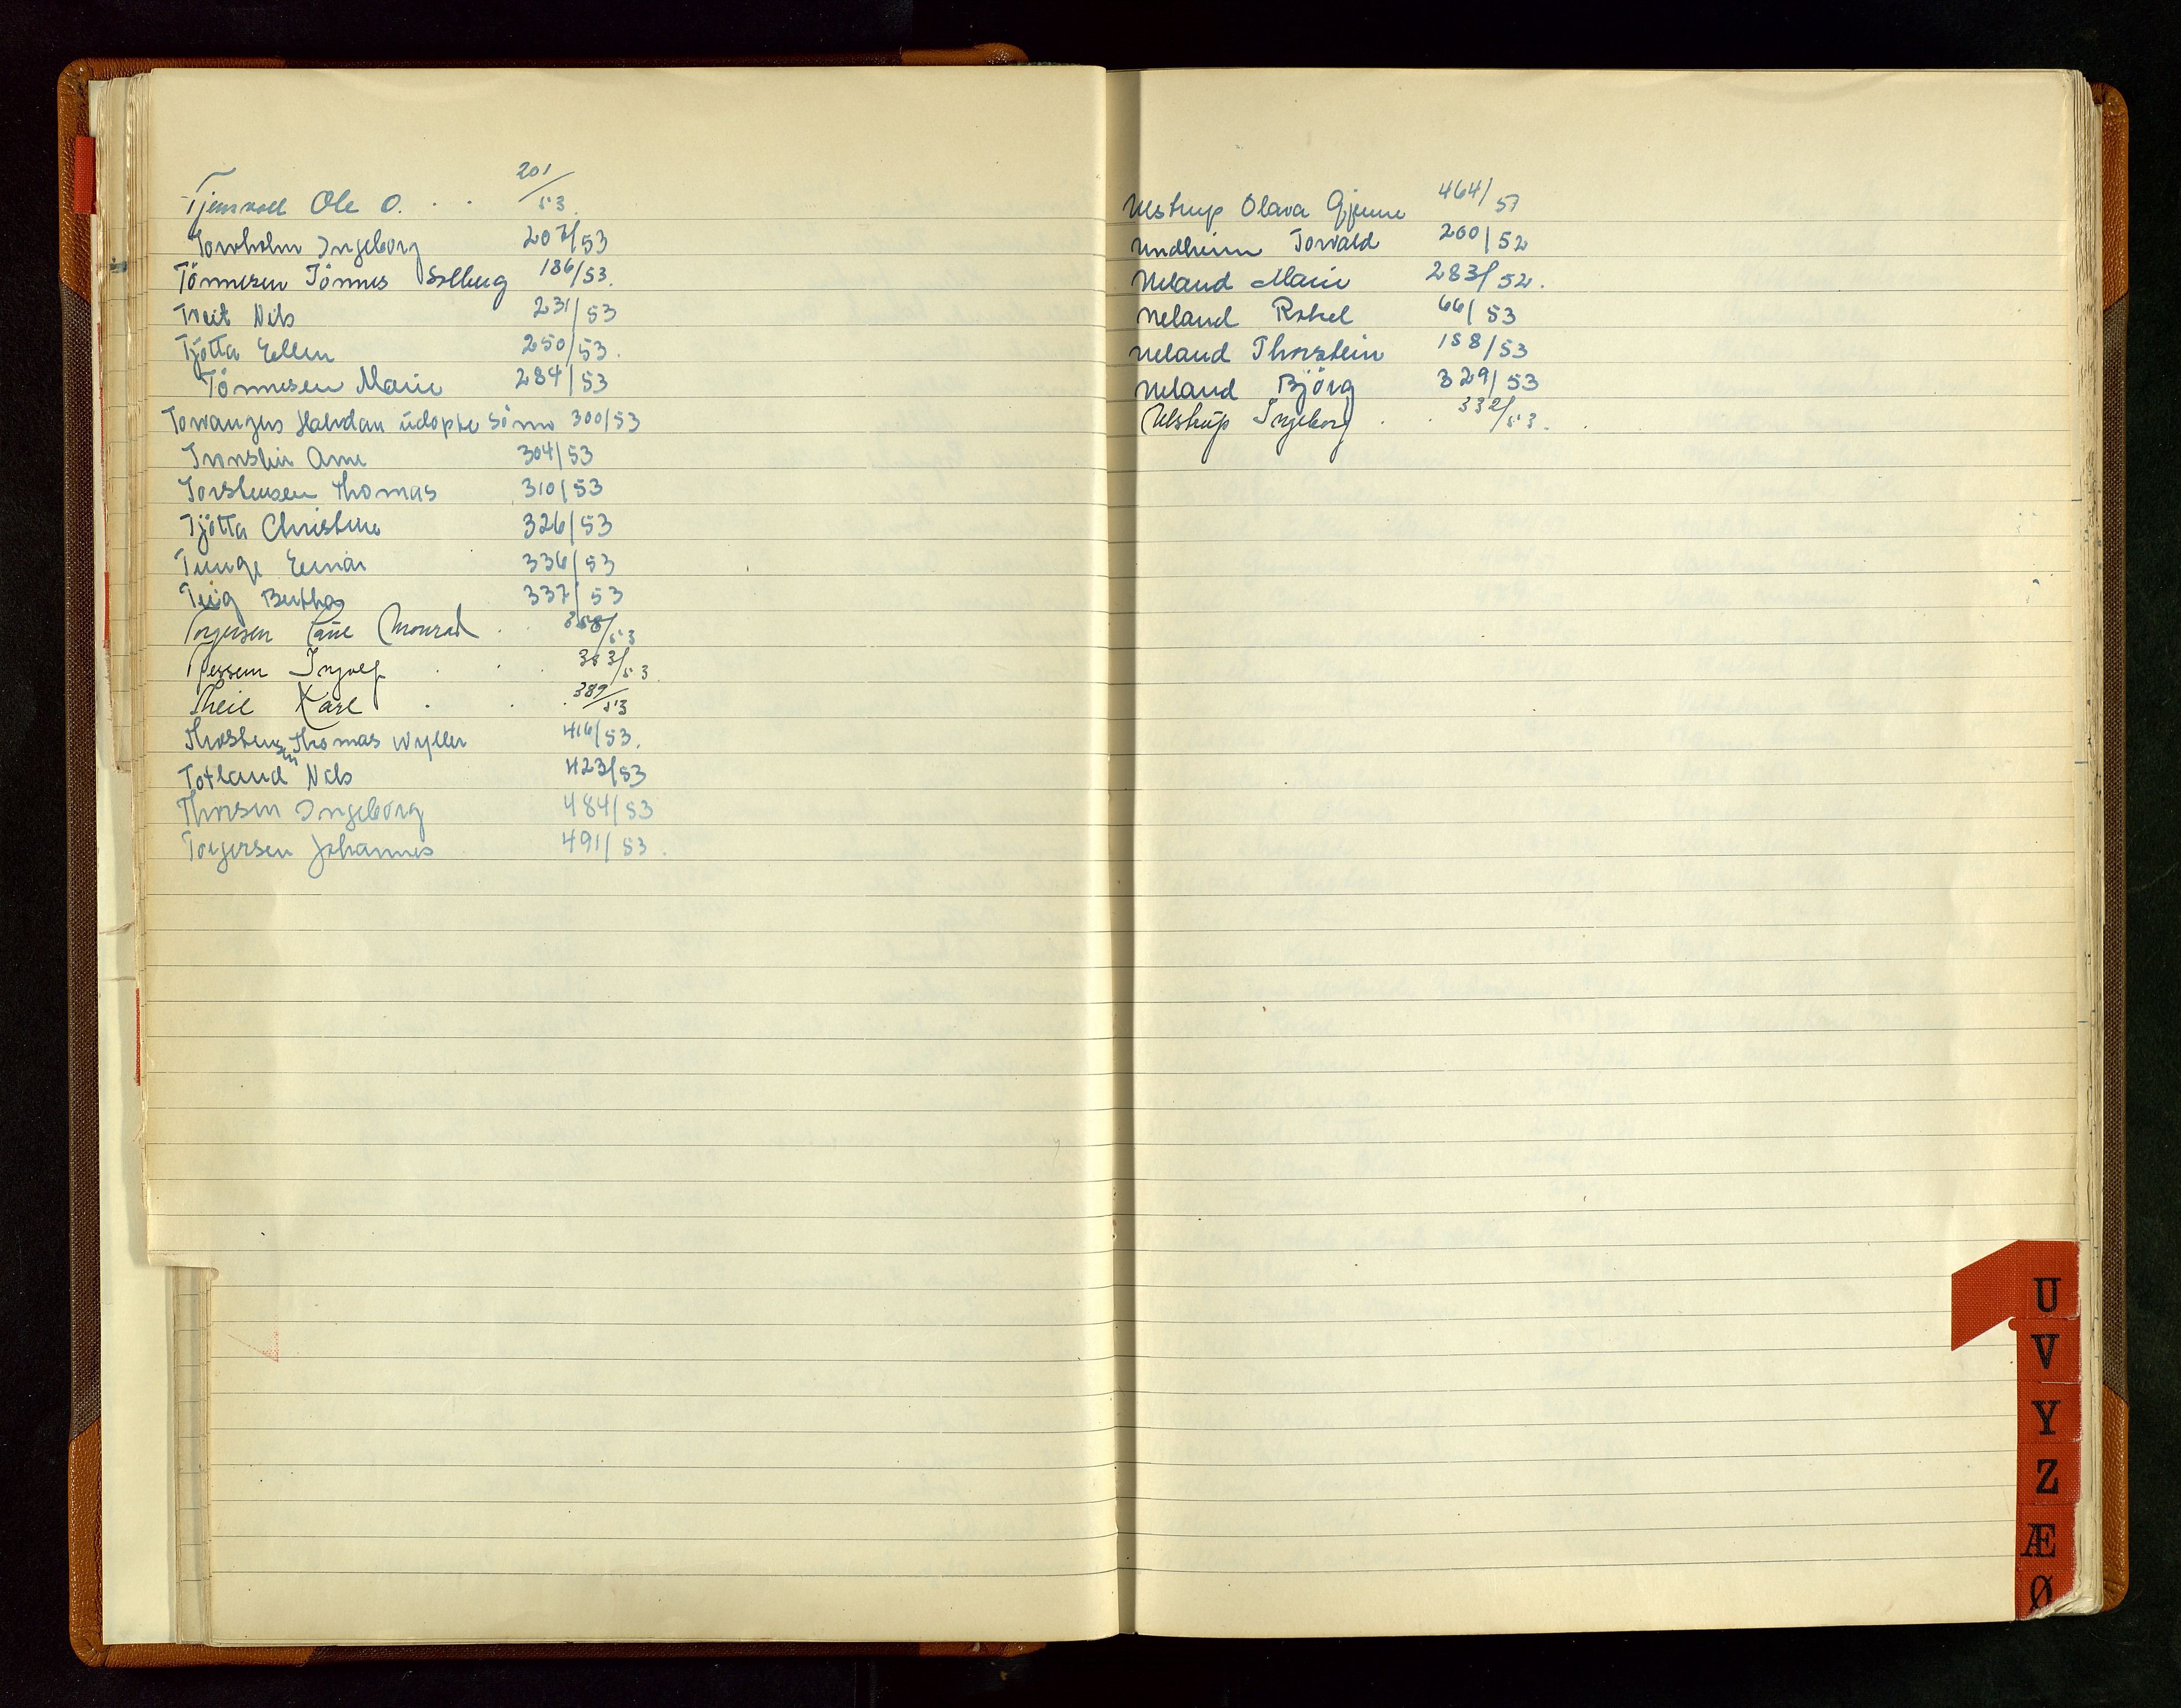 Tjemsvoll Ole O. . . 201/53.
Torvholm Ingeborg 207/53
Tönnesen Tönnes Solberg 186/53.
Tveit Nils 231/53
Tjötta Ellen 250/53.
Tönnesen Marie 284/53
Torvanger Halvdan udöpte sönn 300/53
Tronslin Arne 304/53
Torstensen Thomas 310/53
Tjötta Christine 326/53
Tunge Einar 336/53
Teig Bertha 337/53
Torgersen Conrad . . 358/53
Tjessem Ingolf . . . 383/53.
Theil Kåre . . . 389/53
Thorstensen Thomas Wyller 416/53.
Totland Nils 423/53
Thorsen Ingeborg 484/53
Torgersen Johannes 491/53.
Ulstrup Olava Gjerine 464/51
Undheim Torvald 260/52
Ueland Marie 283/52.
Ueland Rakel 66/53
Ueland Thorstein 158/53
Ueland Björg 329/53
Ulstrup Ingeborg . . 332/53.
U
V
Y
Z
Æ
Ø